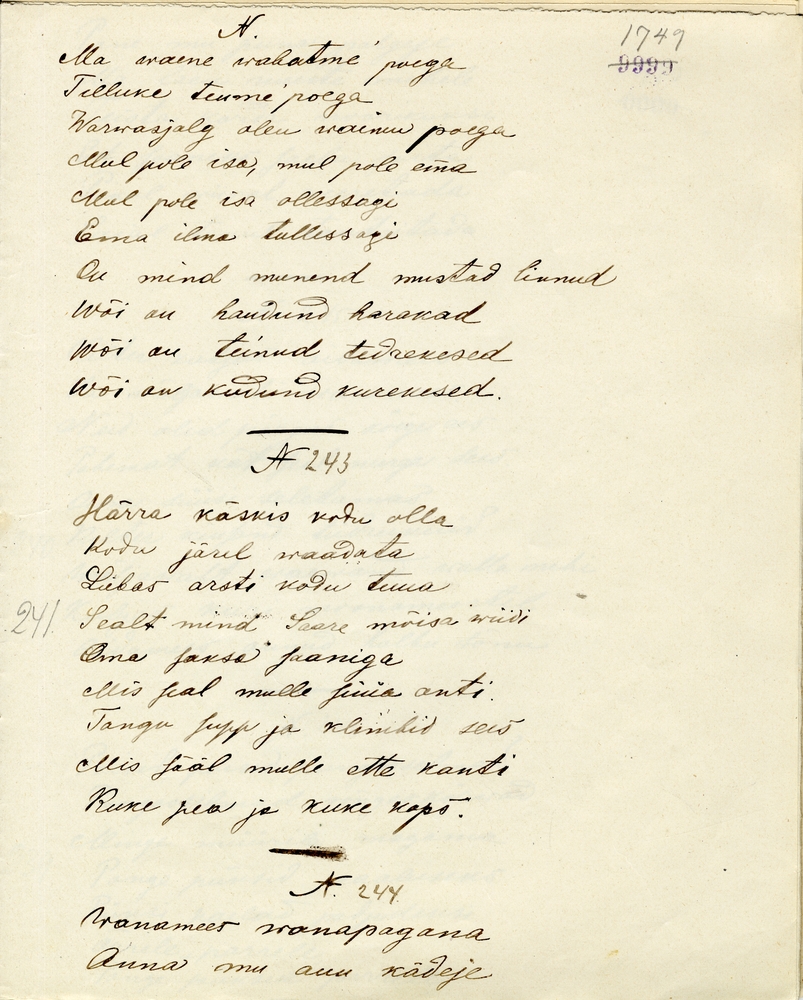 N.
1749
9999
Ma waene wabatme poega
Tilluke teume poega
Warwasjalg olen waimu poega
Mul pole isa, mul pole ema
Mul pole isa ollessagi
Ema ilma tullessagi
On mind munend mustad linnud
Wõi on haudund harakad
Wõi on teinud tedrekesed
Wõi on kudund kurekesed.
N 243
Härra käskis kodu olla
Kodu järel waadata
Liibas arsti kodu tuua
241. Sealt mind Saare mõisa wiidi
Oma saksa saaniga
Mis seal mulle süüa anti.
Tangu supp ja klimbid sees
Mis sääl mulle ette kanti
Kuke pea ja kuke kops.
N. 244
Wanamees wanapagana
Anna mu auu kädeje